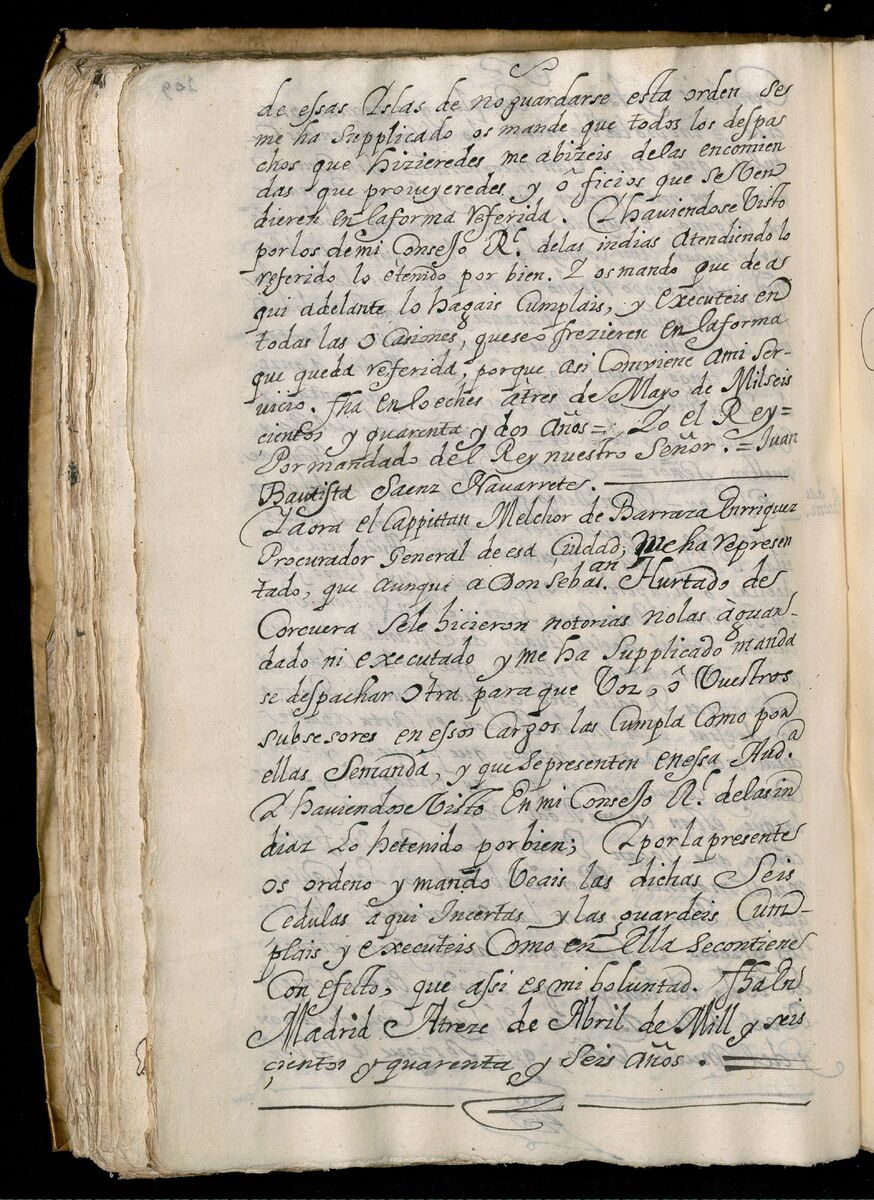 de essas Yslas de no guardarse esta orden se
me ha supplicado os mande que todos los despa
chos que hizieredes me abizeis delas encomien
das que proueyeredes y ô ficios que se Ven
dieren en laforma referida. Y haviendose Visto
por los de mi Consejo Rl. delas indias Atendiendo lo
referido lo é tenido por bien. Y os mando que de a
qui adelante lo hagais Cumplais, y executeis en
todas las ocasiones, que se o frezieren en laforma
que queda referida, porque asi Comviene Ami Ser-
uicio. fha en loeches átres de Mayo de Milseis
cientos y quarenta y dos Años = Yo el Rey =
Por mandado del Rey nuestro Señor. = Juan
Bautista Saenz Navarrete.
Y aora el Cappittan Melchor de Barraza Enrriquez
Procurador General de esa Ciudad, me ha represen
tado, que aunque a Don Sebas.an Hurtado de
Corcuera sele hicieron notorias nolas à guar-
dado ni executado y me ha Supplicado manda
se despachar Otra para que Voz, ô Vuestros
subsesores en essos Cargos las Cumpla Como por
ellas Semanda, y que se presenten en essa Aud.a
Y haviendose Visto En mi Consejo Rl. delas in
diaz Lo hetenido por bien; Y por la presente
os ordeno y mando Veais las dichas Seis
Cedulas aqui Incertas y las guardeis Cum-
plais y executeis Como en ella se contiene
Con efecto, que assi es mi boluntad. fha En
Madrid Atreze de Abril de Mill y seis
çientos y quarenta y Seis Años.